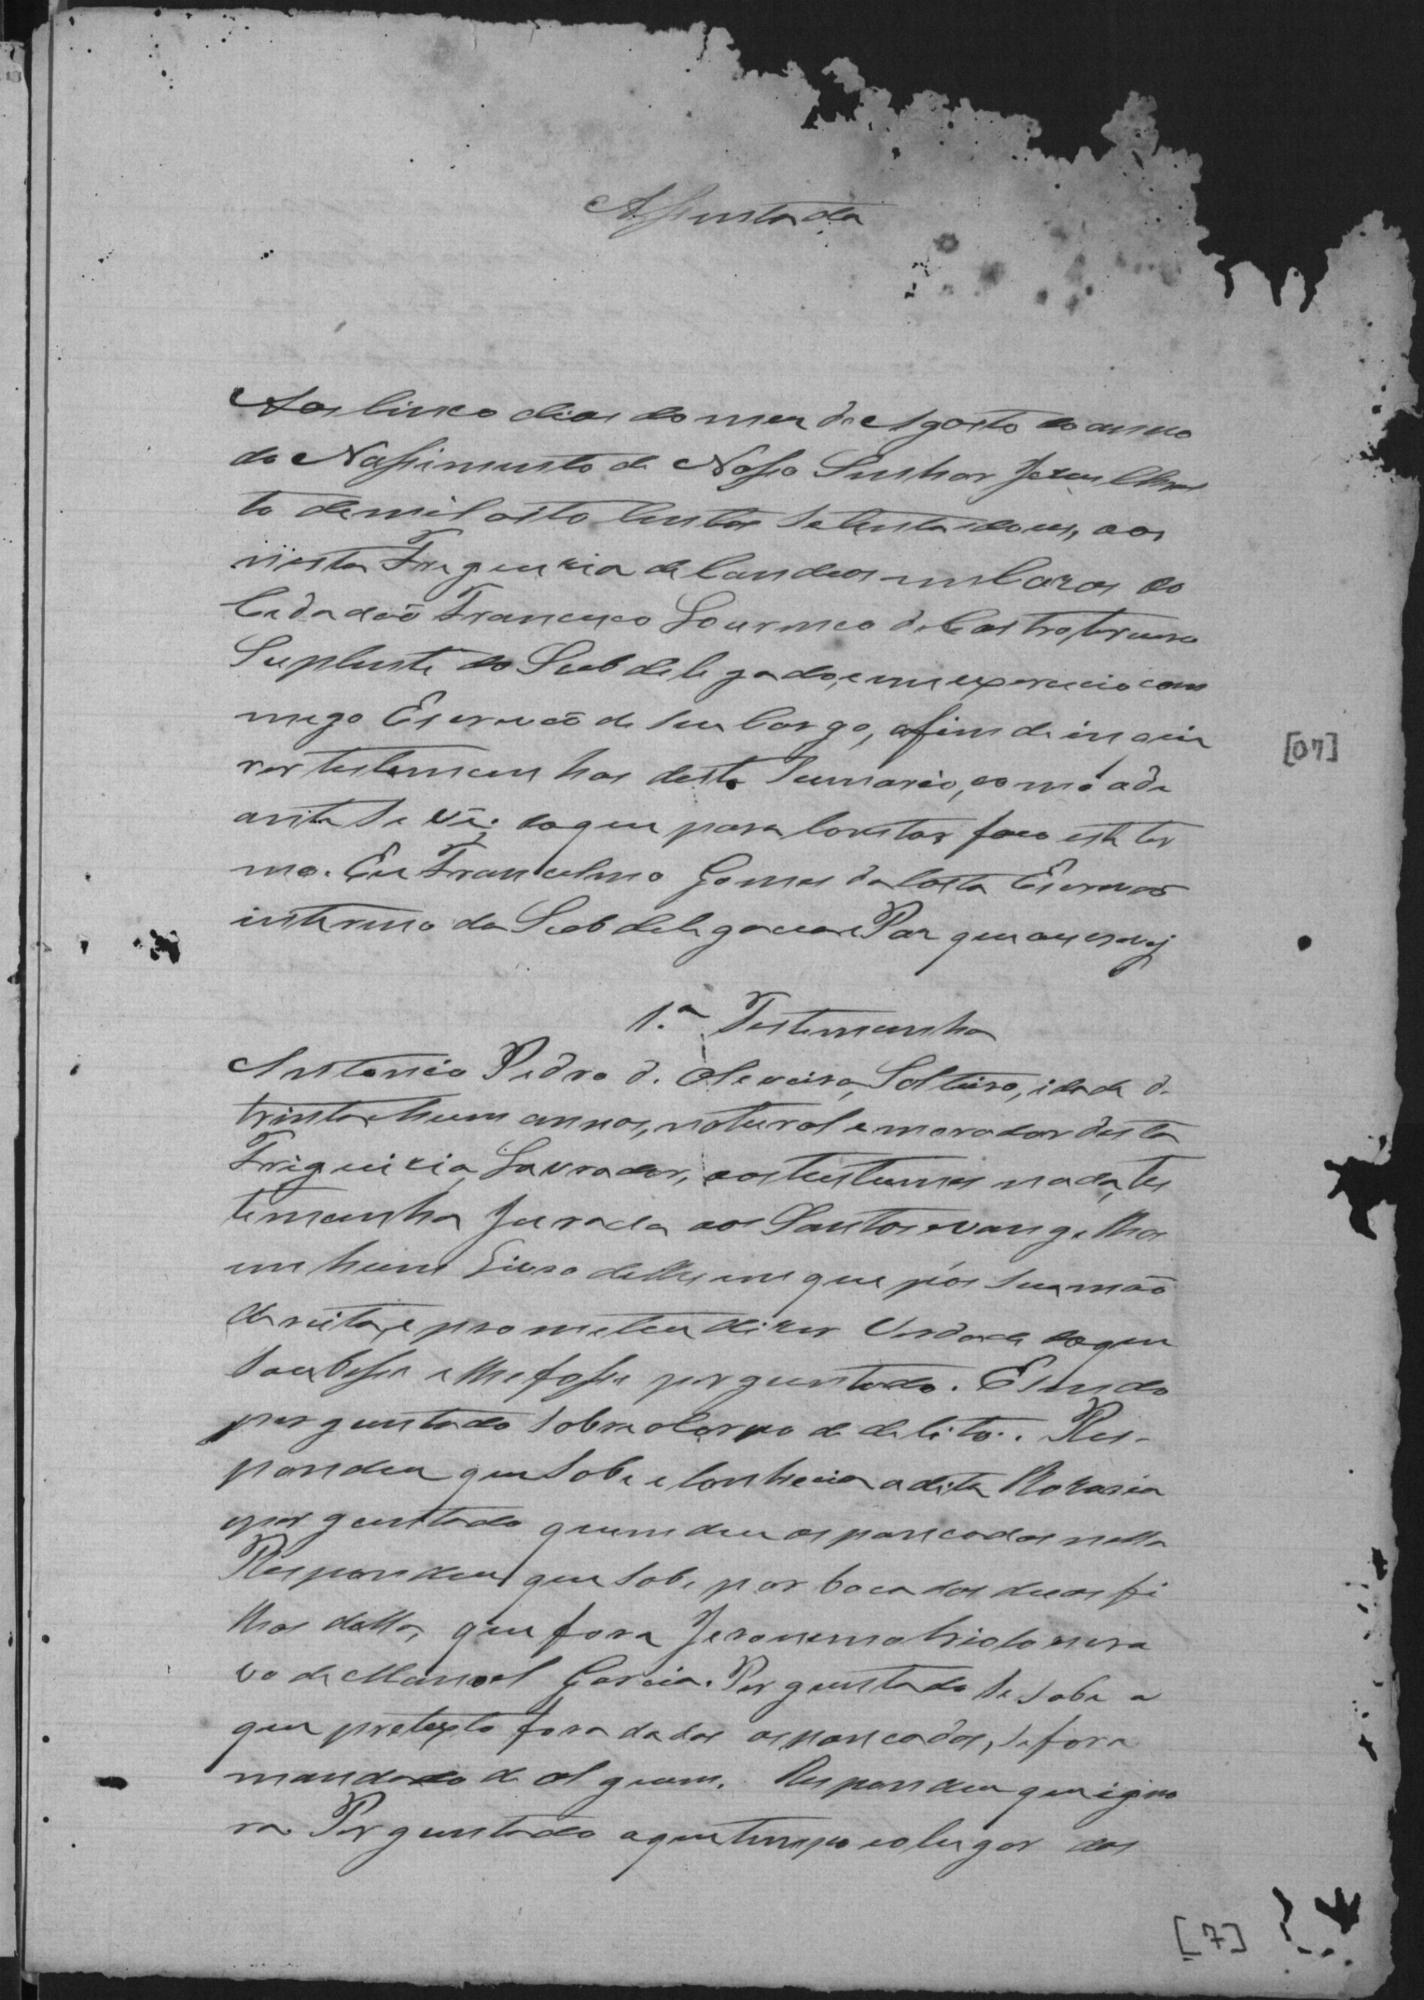 Assentada
Aos cinco dias do mez de Agosto do anno
do Nassimento de Nosso Senhor Jezus Chris
to de mil oito centos setenta e dous, aos
nesta Freguezia de Candeas em Cazas do
Cidadaõ Francisco Lourenco de Castro, terceiro
Suplente do Subdelegado, em exercicio com
migo Escrivaõ de seu Cargo, afim de inquir
rer testemunhas deste Sumario, como adi
ante se vê; do que para constar faco este ter
mo. Eu Francelino Gomes da Costa Escrivaõ
interino da Subdelegacia e Paz que o escrevj
1.ª Testemunha
Antonio Pedro d. Oliveira, Solteiro, idade d.
trinta e hum annos, natural e morador desta
Freguizia, Lavrador, aos custumes nada, tes
temunha Jurada aos Santos evangelhos
em hum Livro delles em que pôs sua maõ
dereita, e prometeu dizer Verdade do que
soubesse e lhe fosse perguntado. E sendo
perguntado sobre o Corpo de delito.. Res-
pondeu que sabe e conhecia a dita Rozaria
e perguntado quem deu as pancadas nella
Respondeu que sabe por boca dos duos fi
lhos della, que fora Jeronimo triolo escra
vo de Manoel Garcia. Perguntado se sabe a
que pretexto fora dadas as pancadas, se fora
mandado de alguem. Respondeu que igno
ra Perguntado a que tempo e o lugar das
[07]
[7]